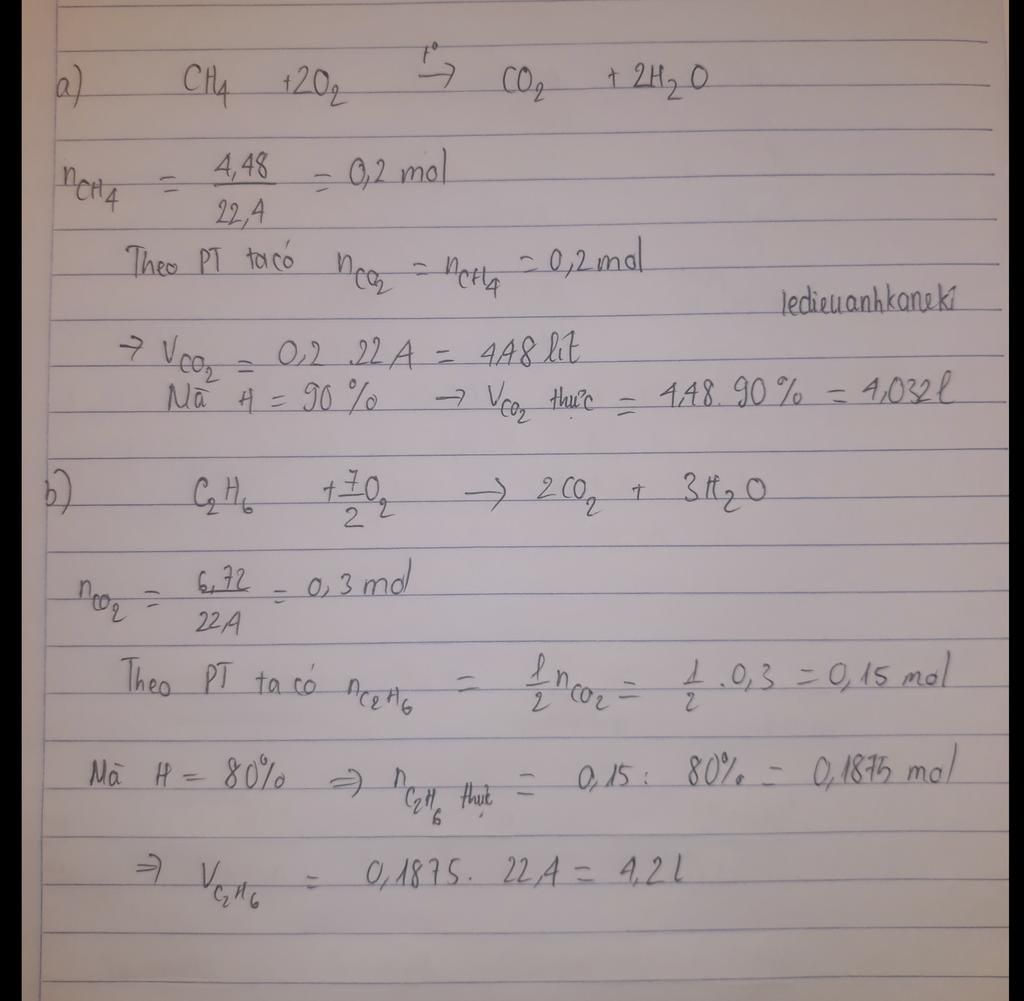 a) CH₄ +2O₂ →(t°) CO₂ + 2H₂O
n_CH₄ = 4,48/22,4 = 0,2 mol
Theo PT ta có n_CO₂ = n_CH₄ = 0,2 mol
ledieuanhkaneki
→ V_CO₂ = 0,2 .22,4 = 4,48 lít
Mà H = 90% → V_CO₂ thực = 4,48. 90% = 4,032l
b) C₂H₆ + 7/2 O₂ → 2CO₂ + 3H₂O
n_CO₂ = 6,72/22,4 = 0,3 mol
Theo PT ta có n_C₂H₆ = 1/2 n_CO₂ = 1/2 .0,3 = 0,15 mol
Mà H = 80% ⇒ n_C₂H₆ thực = 0,15: 80% = 0,1875 mol
⇒ V_C₂H₆ = 0,1875. 22,4 = 4,2l